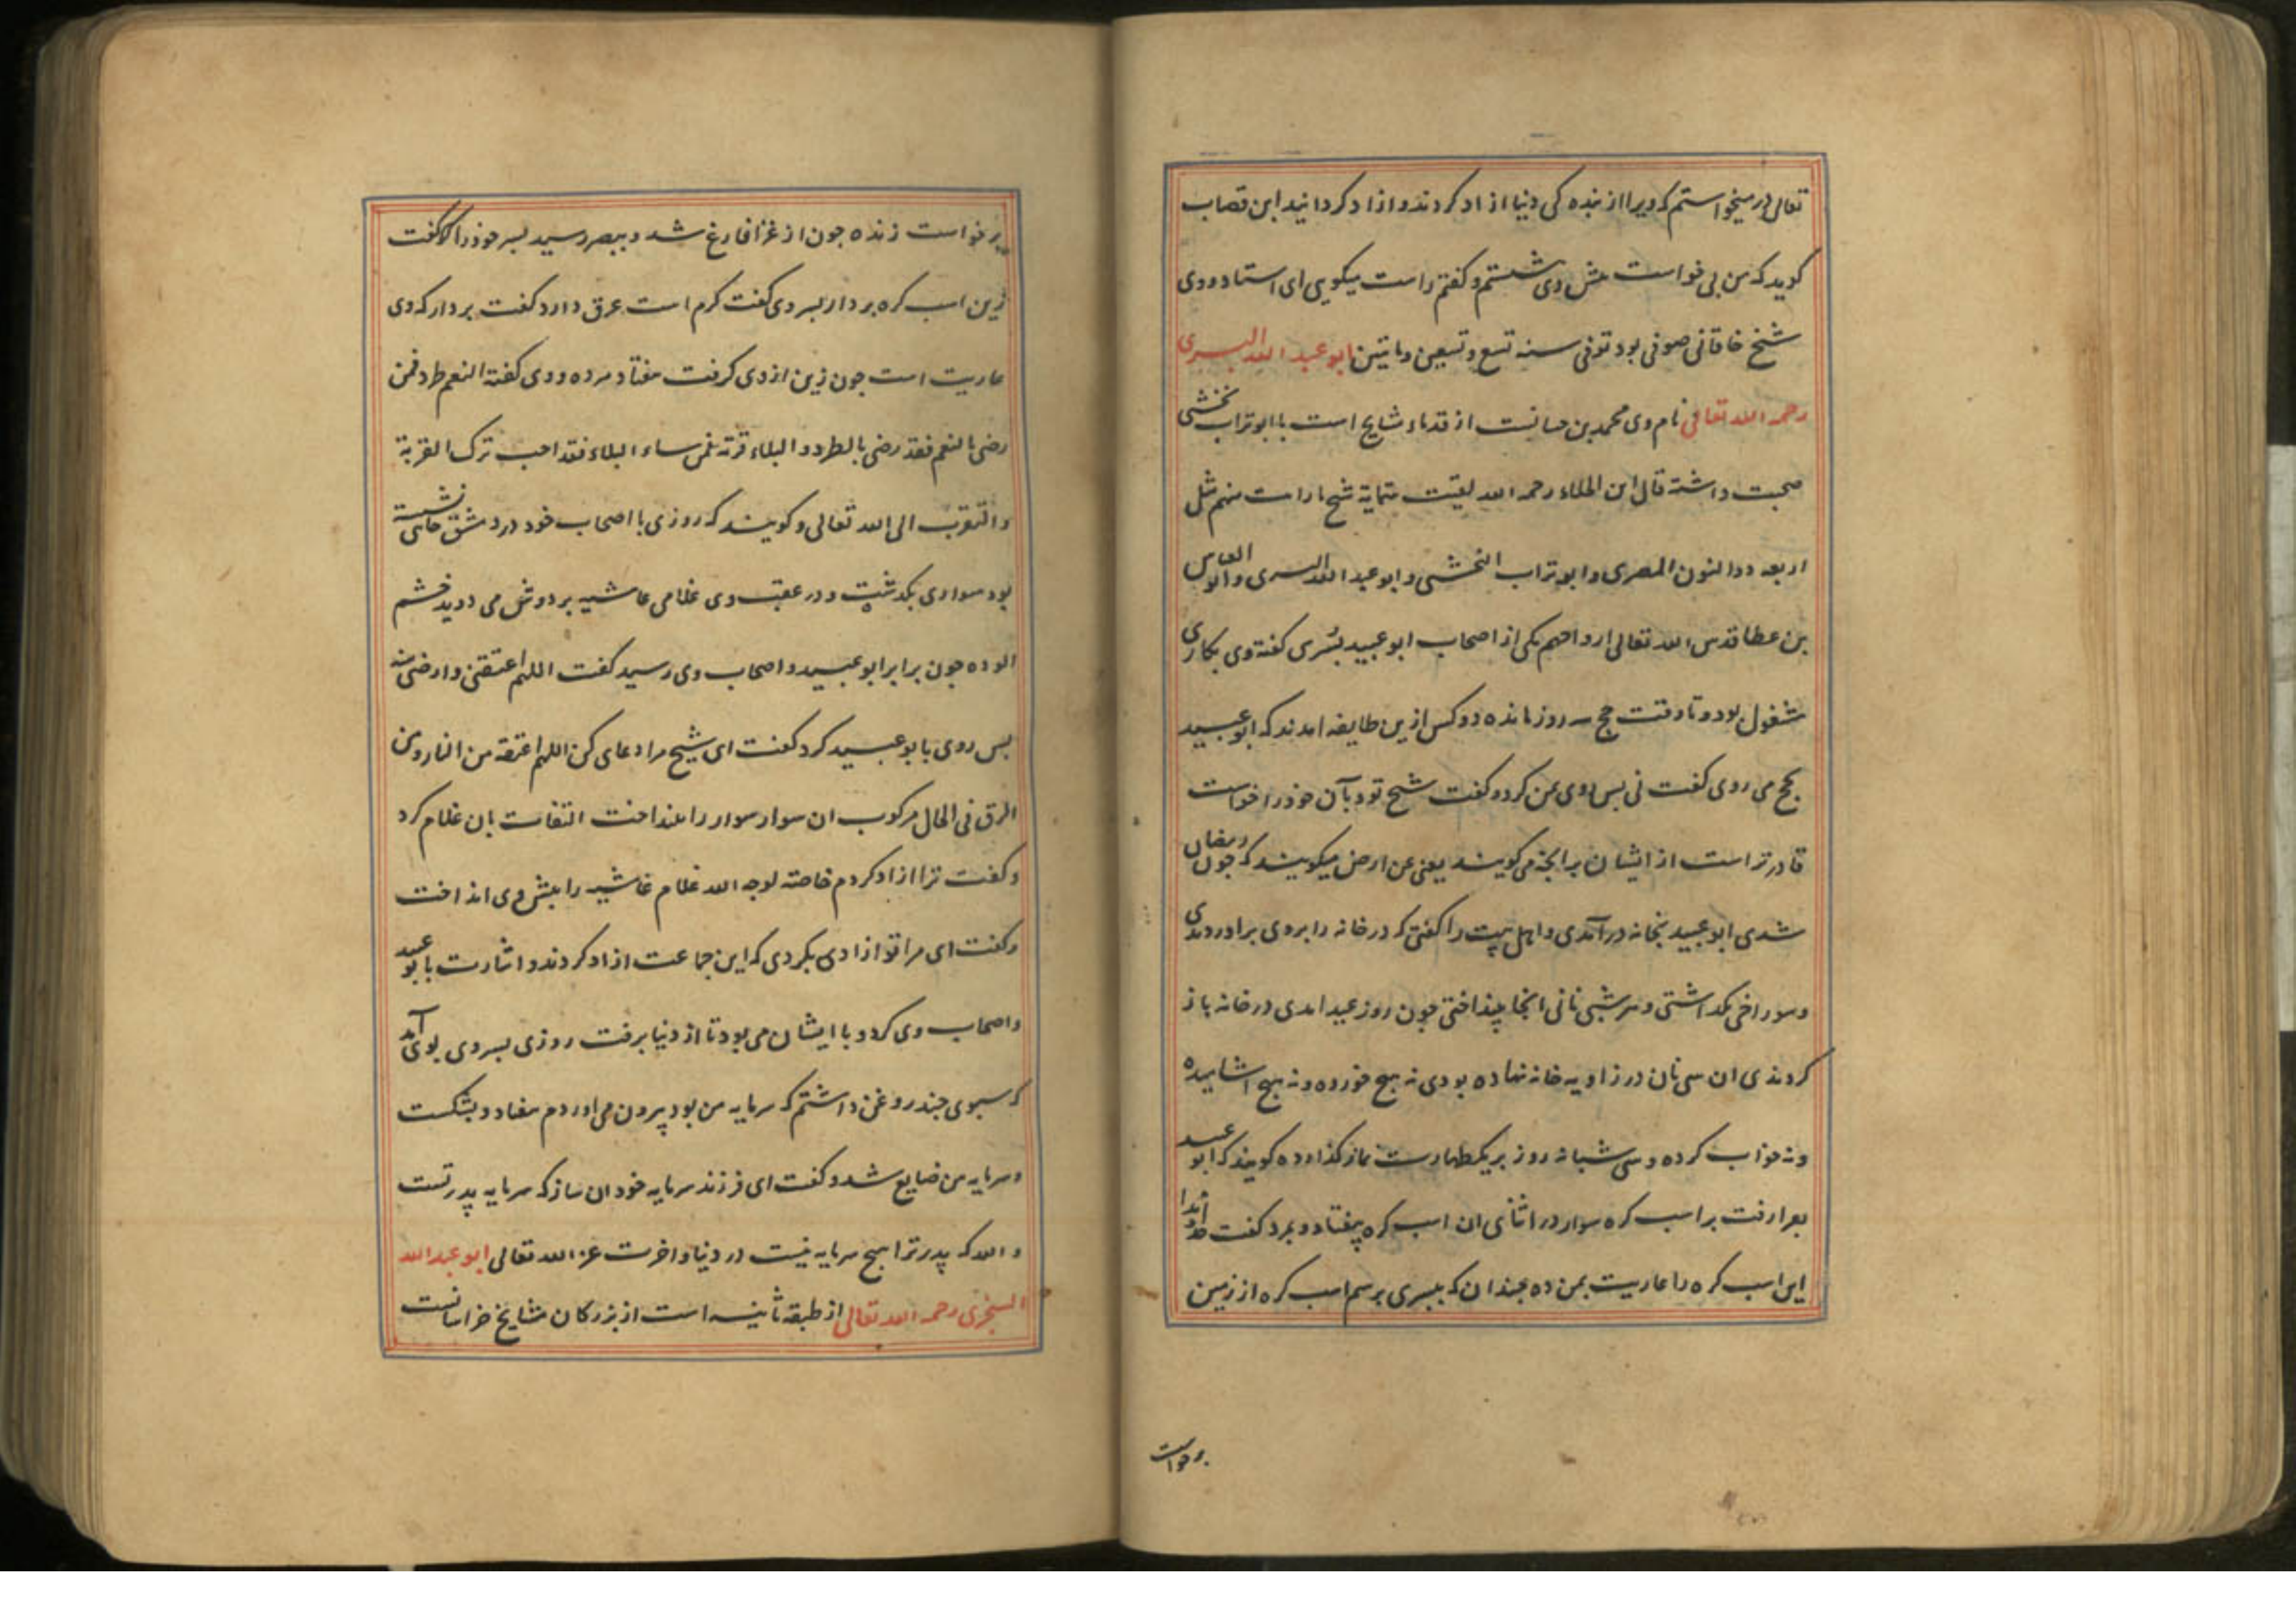 تعالی در میخواستم که ویرا از بنده کی دنیا ازاد کردند و ازاد کردانید ابن قصاب
کوید که من بی خواست پیش وی شستم و کفتم راست میکویی ای استاد و وی
شیخ خاقانی صوفی بود توفی سنه تسع و تسعین و مایتین ابو عبد الله البسری
رحمه الله تعالی نام وی محمد بن حسانست از قدماء مشایخ است با ابو تراب نخشبی
صحبت داشته قال ابن الجلاء رحمه الله لقیت ستمایة شیخ ما رات منهم مثل
اربعه ذوالنون المصری وابو تراب النخشبی وابو عبد الله البسری وابو العباس
بن عطا قدس الله تعالی ارواحهم یکی از اصحاب ابو عبید بُسری کفته وی بکاری
مشغول بود و تا وقت حج سه روز مانده دو کس ازین طایفه امدند که ابو عبید
بحج می روی کفت نی پس روی بمن کرد و کفت شیخ تو بدآن خود را خواست
قادرتر است از ایشان بدانچه می کویند یعنی عن ارض میکویند که چون رمضان
شدی ابو عبید بخانه درآمدی و اهل بیت را کفتی که در خانه را بروی براوردندی
و سوراخی بکذاشتی و هر شبی نانی انجا بینداختی چون روز عید امدی در خانه باز
کردندی ان سی نان در زاویه خانه نهاده بودی نه هیچ خورده و نه هیچ اشامیده
و نه خواب کرده و سی شبانه روز بر یکطهارت نماز کذارده کویند که ابو عبید
بغزا رفت بر اسب کره سوار در اثنای ان اسب کره بیفتاد و بمرد کفت خداوندا
این اسب کره را عاریت بمن ده چندان که ببسری برسم اسب کره از زمین
برخواست
برخواست زنده چون از غزا فارغ شد و ببصر رسید پسر خود را کفت
زین اسب کره بردار پسر وی کفت کرم است عرق دارد کفت بردار که وی
عاریت است چون زین از وی کرفت بیفتاد مرده و وی کفته النعم طرد فمن
رضی بالنعم فقد رضی بالطرد و البلاء قربة فمن ساءه البلاء فقد احب ترک القربة
والتقرب الی الله تعالی و کویند که روزی با اصحاب خود در دمشق جای نشسته
بود سواری بکذشت و در عقب وی غلامی غاشیه بر دوش می دوید خشم
الوده چون برابر ابو عبید و اصحاب وی رسید کفت اللهم اعتقنی و ارضی منه
پس روی بابو عبید کرد کفت ای شیخ مرا دعای کن اللهم اعتقه من النار و من
الرق فی الحال مرکوب ان سوار سوار را بینداخت التفات بان غلام کرد
و کفت ترا ازاد کردم خاصة لوجه الله غلام غاشیه را پیش وی انداخت
و کفت ای مرا تو ازادی بکردی که این جماعت ازاد کردند و اشارت بابو عبید
و اصحاب وی کرد و با ایشان می بود تا از دنیا برفت روزی پسر وی بوی آمد
که سبوی چند روغن داشتم که سرمایه من بود بیرون می اوردم بیفتاد و بشکست
و سرمایه من ضایع شد و کفت ای فرزند سرمایه خود ان ساز که سرمایه پدر تست
والله که پدر ترا هیچ سرمایه نیست در دنیا و اخرت غیر الله تعالی ابو عبد الله
السجزی رحمه الله تعالی از طبقه ثانیه است از بزرکان مشایخ خراسانست